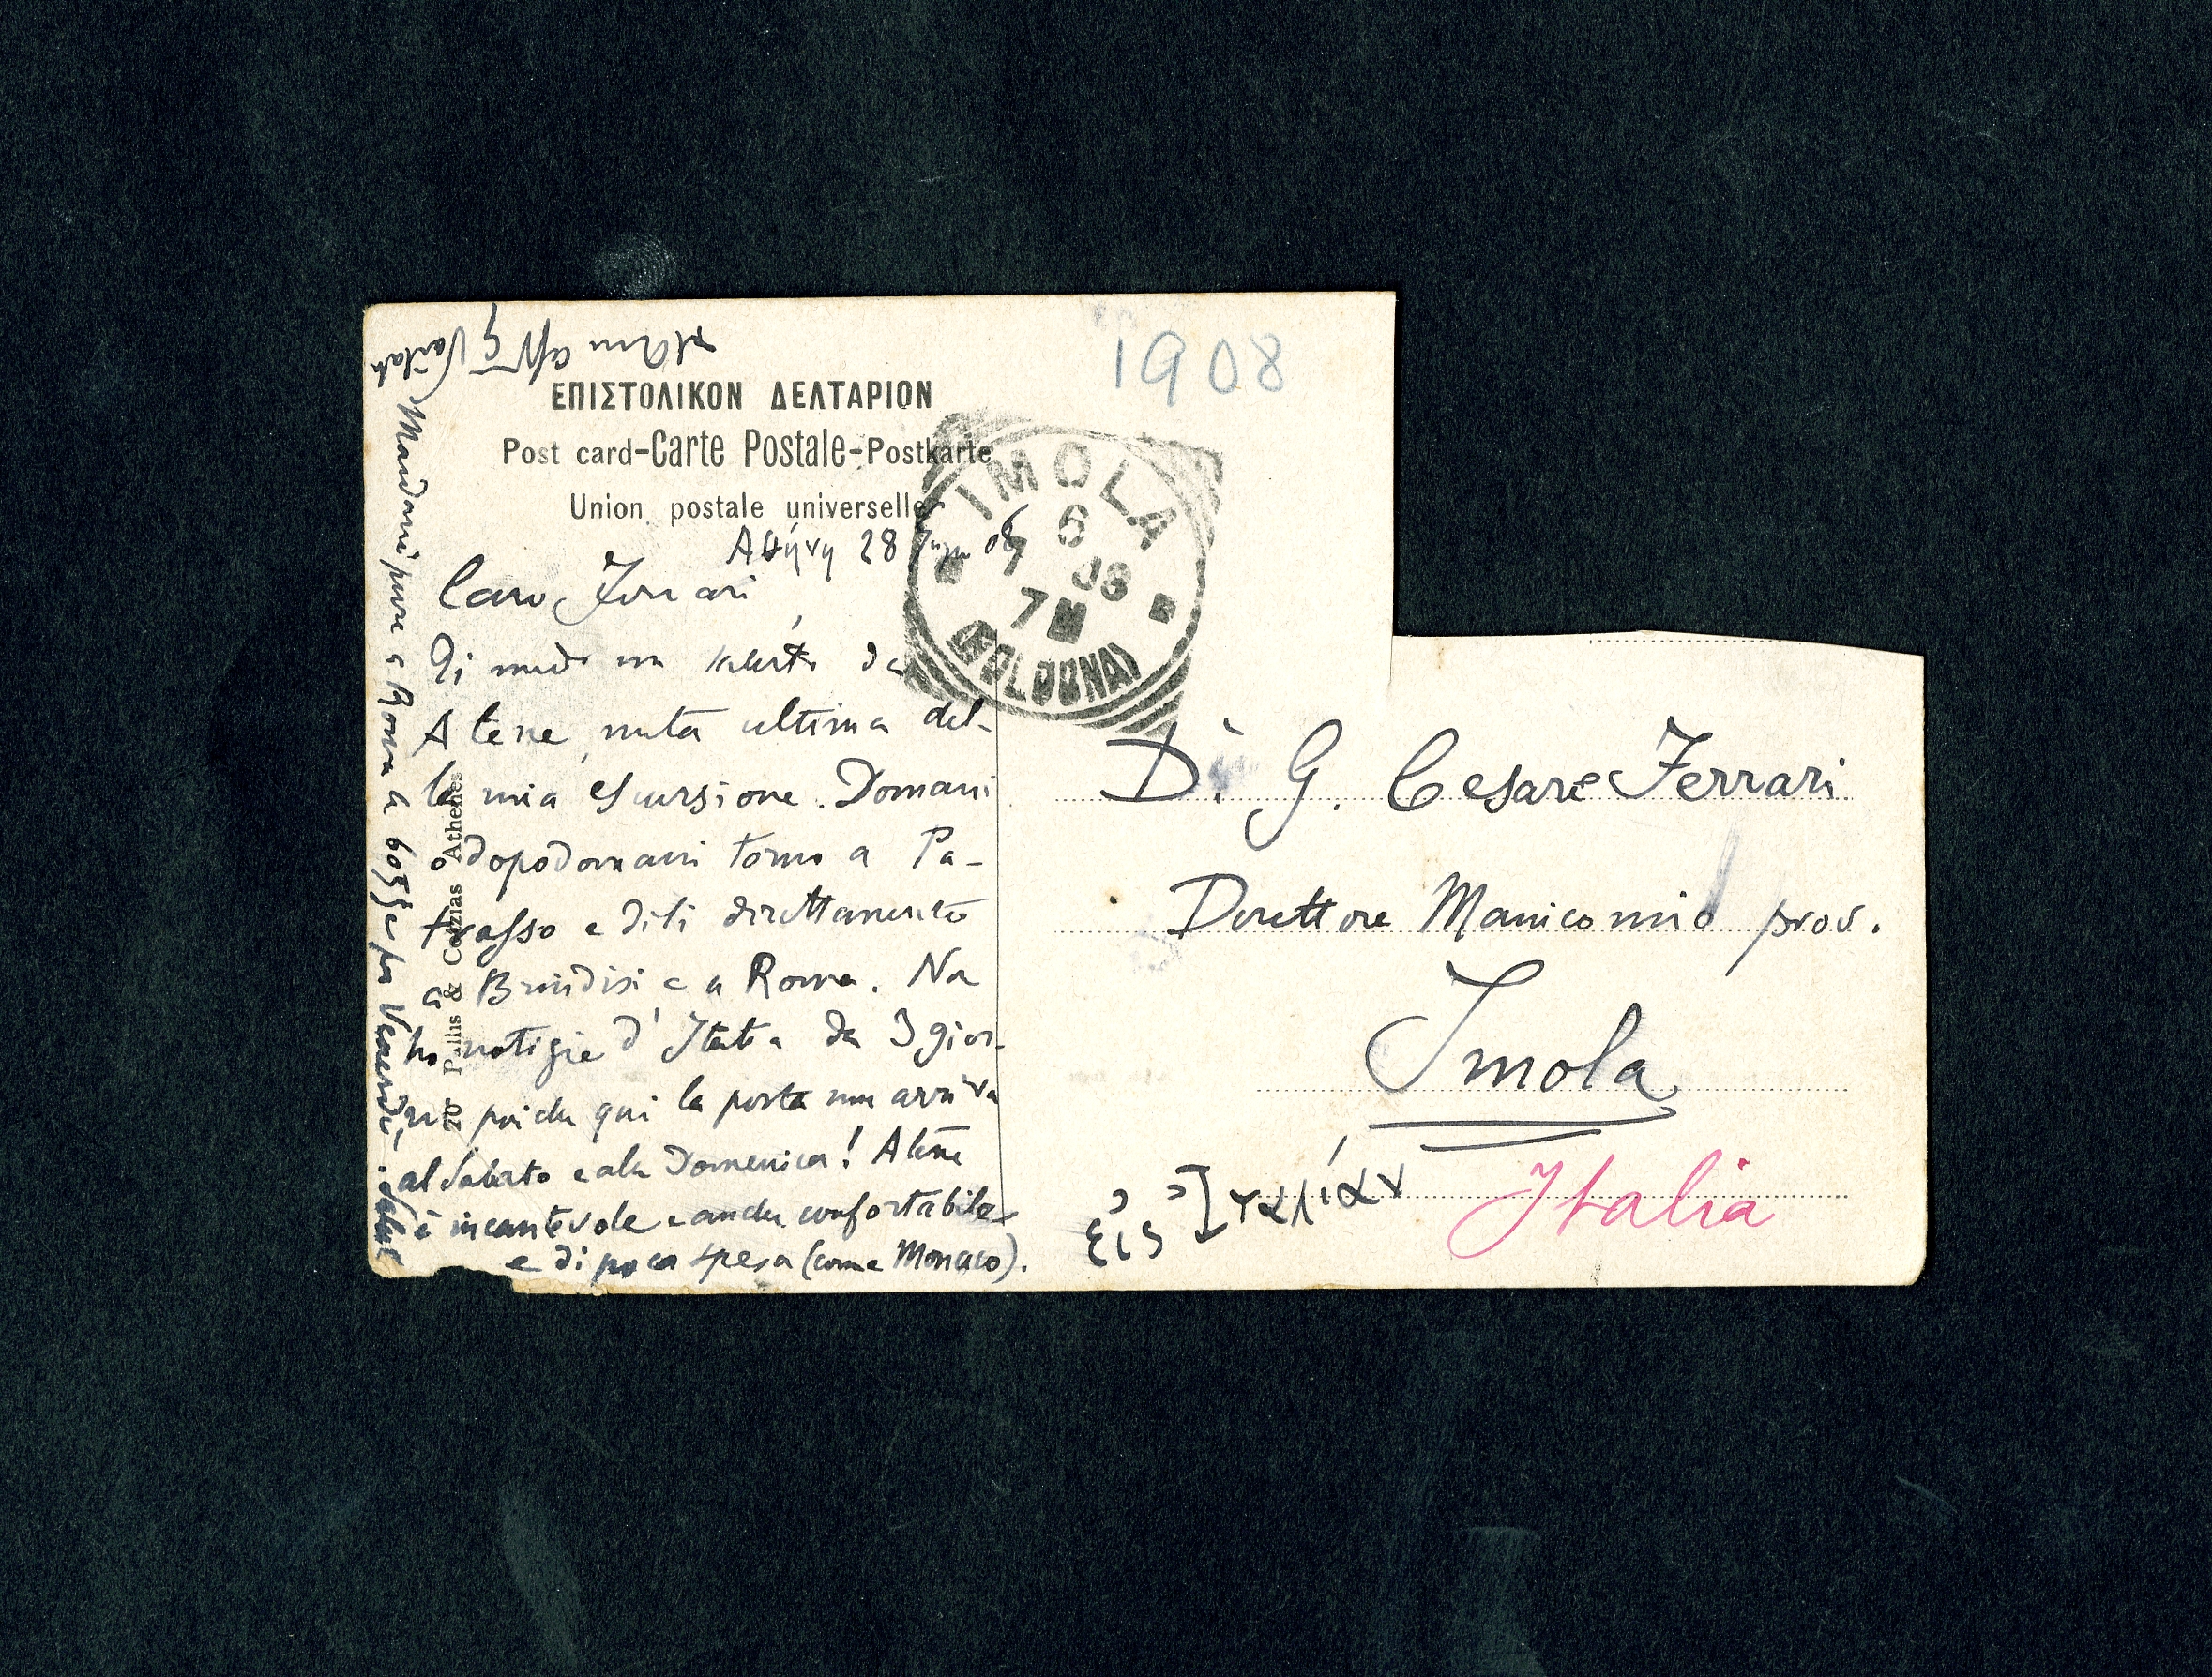 1908
ΕΠΙΣΤΟΛΙΚΟΝ ΔΕΛΤΑΡΙΟΝ
Post card-Carte Postale-Postkarte
Union postale universelle
IMOLA
6
7 08
7 M
(BOLOGNA)
Ἀθήνη 28 08
Caro Ferrari
Ti mando un saluto da
Atene, meta ultima del-
la mia escursione. Domani
o dopodomani torno a Pa-
trasso e di lì direttamente
a Brindisi e a Roma. Non
ho notizie d'Italia da 3 gior-
ni poiché qui la posta non arriva
al Sabato e alla Domenica! Atene
è incantevole e anche confortabile
e di poca spesa (come Monaco).
Mandami pure a Roma a bozze per Salut
aff G Vailati
20 Pallis & Cotzias Athènes
Dr. G. Cesare Ferrari
Direttore Manicomio prov.
Imola
εἰς Ἰταλίαν
Italia